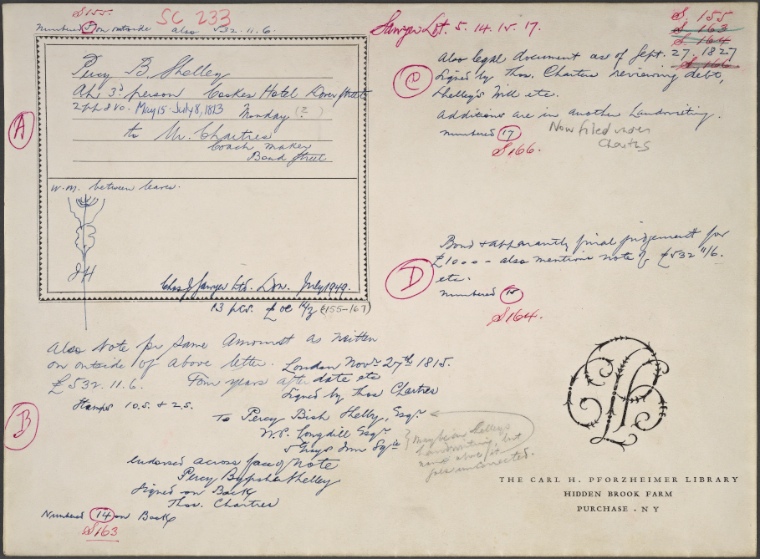 S155.
SC 233
Numbered 5 on outside also 532.11.6.
A
Percy B. Shelley
ALs 3d person Cookes Hotel Dover Street
2 pp 8vo. May 15 - July 8, 1813 Monday (?)
to Mr. Chartres
Coach maker
Bond Street
W.M. between leaves.
JH
Chas J. Sawyer Ltd. Lon. July 1949.
13 pcs. (155-167)
Also Note for same Amount as written
on outside of above letter. London Novr 27th 1815.
£532.11.6. Four years after date etc
Signed by Thos Charter
Stamps 10.S. & 2.S.
B
To Percy Bish Shelley, Esqr
W.P. Longdill Esqr
5 Grays Inn Sq
Maybe in Shelley's
handwriting, but
unconnected.
endorsed across face of Note
Percy Bysshe Shelley
Signed on Back
Thos. Charters
Numbered 14 on Back
S163
Sawyer Lot. 5. 14. 15. 17.
S. 155
S 163
S 164
S 166
C
Also legal document as of Sept. 27. 1827
Signed by Thos. Charters reviewing debt,
Shelley's Will etc.
Additions are in another handwriting.
numbered 17
Now filed under
Charters
S166.
D
Bond & apparantly final judgement for
£1000 - also mentions note of £532 11/6.
etc.
numbered 15
S164.
THE CARL H. PFORZHEIMER LIBRARY
HIDDEN BROOK FARM
PURCHASE · NY